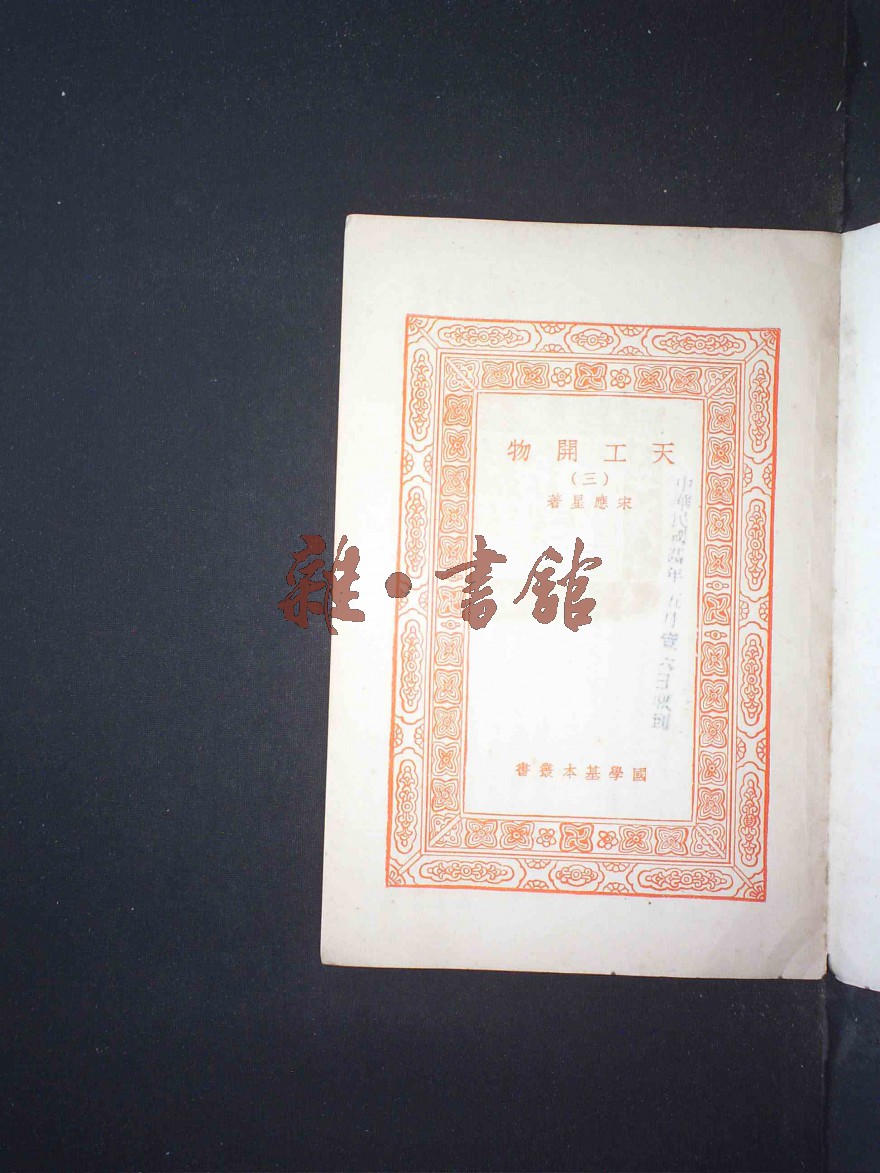 天工開物
(三)
宋應星著
中華民國年五月六日
國學基本叢書
雜·書館